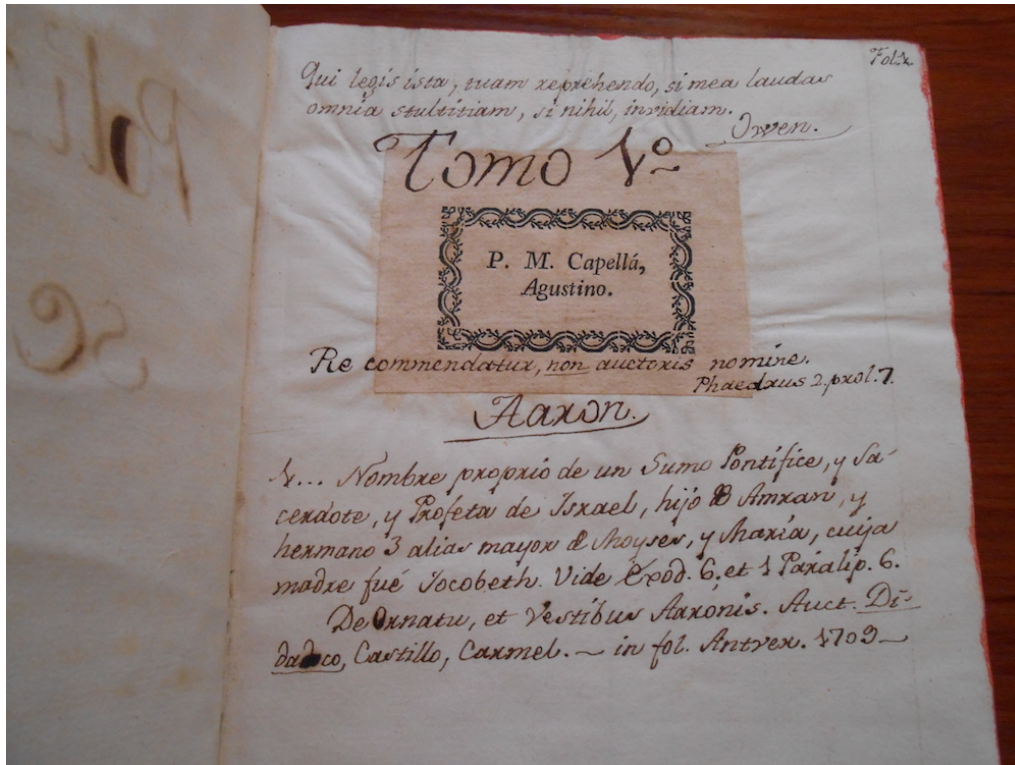 Fol. 1
Qui legis ista, tuam reprehendo, si mea laudas
omnia stultitiam, si nihil, invidiam.
Owen.
Tomo 1º
P. M. Capellá,
Agustino.
Re commendatur, non auctoris nomine.
Phaedrus 2. prol. 7.
Aaron.
1... Nombre proprio de un Sumo Pontifice, y Sa-
cerdote, y Profeta de Israel, hijo de Amran, y
hermano 3 alias mayor de Moyses, y María, cuija
madre fué Jocobeth. Vide Exod. 6. et 1 Paralip. 6.
De Ornatu, et Vestibus Aarónis. Auct. Di-
daco, Castillo, Carmel. ~ in fol. Antver. 1709 ~